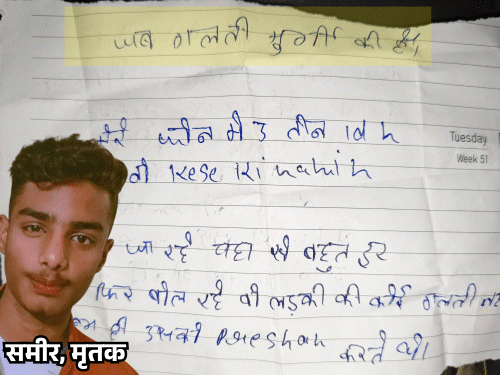 जब गलती मुर्गी की है,
मेरे फोन मे 3 तीन id h
वो kese ki nahi h
Tuesday
Week 51
जा रहे यहा से बहुत दूर
फिर बोल रहे वो लड़की की कोई गलती
हम ही उसको Preshan करते थे।
समीर, मृतक